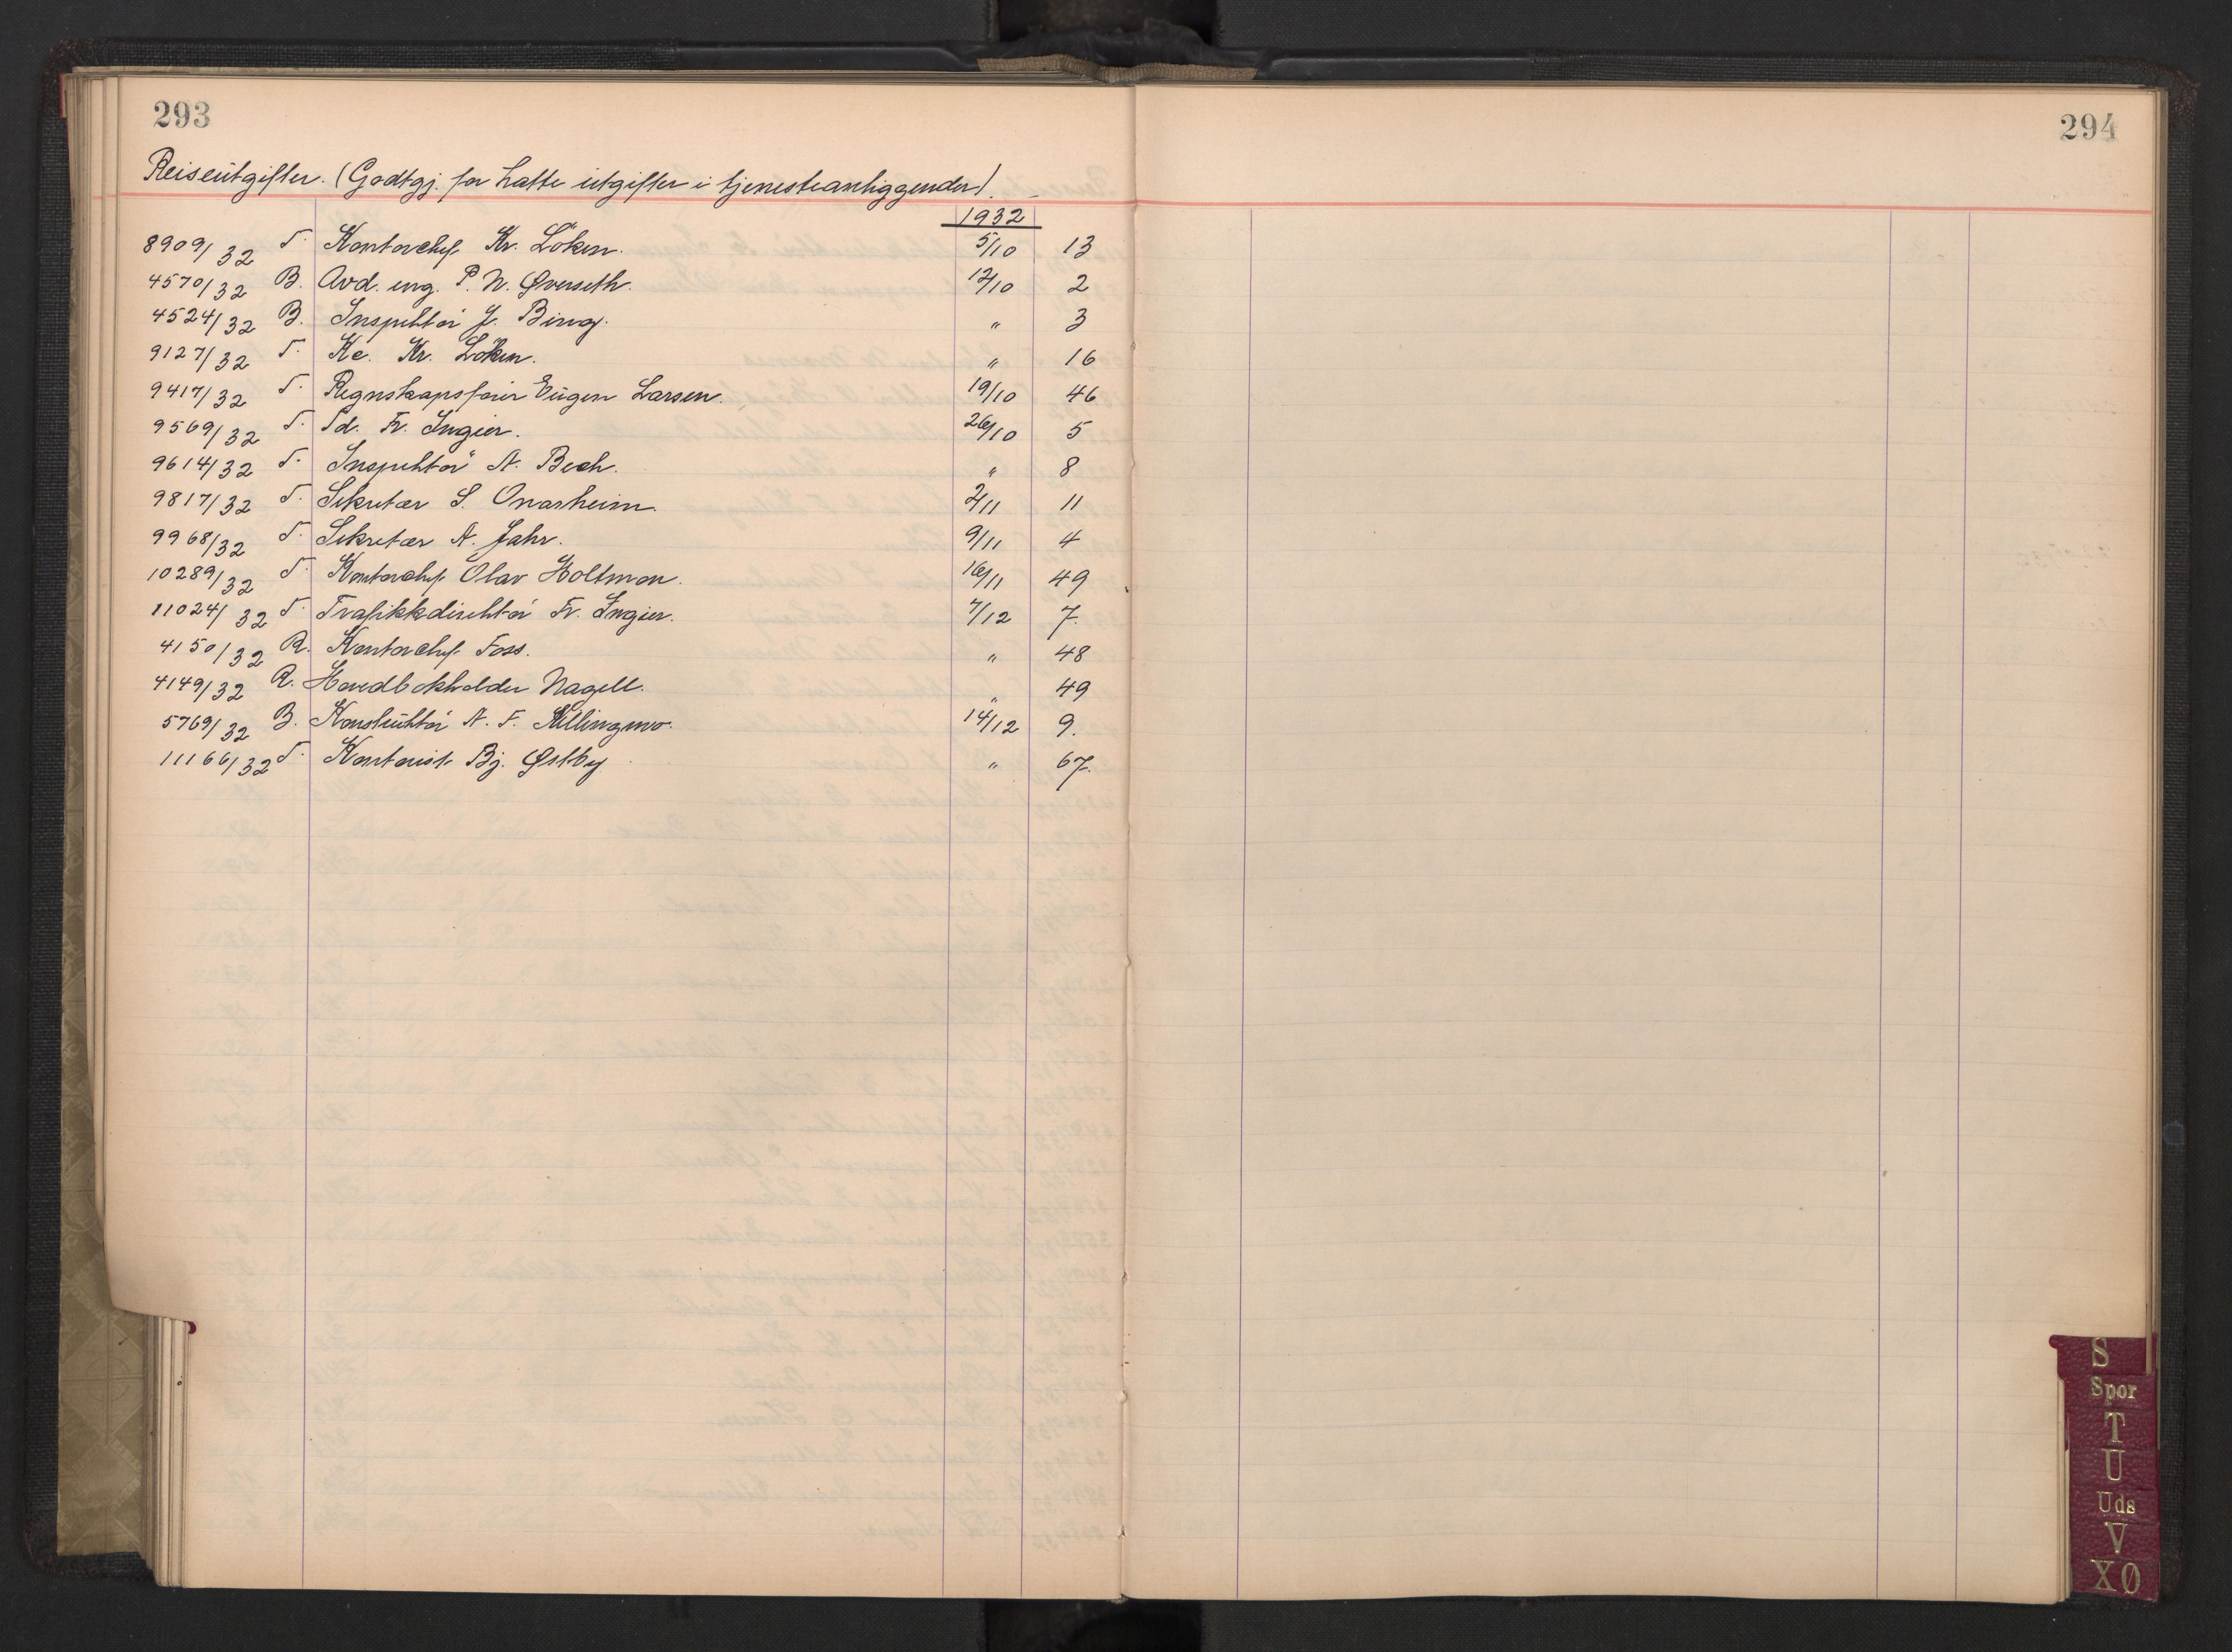 293
294
Reiseutgifter. (Godtgj. for hatte utgifter i tjenesteanliggender)
1932
8909/32 T. Kontorchef Kr. Löken. 5/10 13
4570/32 B. Avd. ing. P. N. Øverseth. 12/10 2
4524/32 B. Inspektör J. Bing. " 3
9127/32 T. Kc. Kr. Löken. " 16
9417/32 T. Regnskapsförer Eugen Larsen. 19/10 46
9569/32 T. Td. Fr. Ingier. 26/10 5
9614/32 T. Inspektör A. Bech. " 8
9817/32 T. Sekretær S. Onarheim. 2/11 11
9968/32 T. Sekretær A. Jahr. 9/11 4
10289/32 T. Kontorchef Olav Holtmon. 16/11 49
11024/32 T. Trafikkdirektör Fr. Ingier. 7/12 7.
4150/32 R. Kontorchef Foss. " 48
4149/32 R. Hovedbokholder Nagell. " 49
5769/32 B. Konstruktör A. F. Killingmo. 14/12 9.
11166/32 T. Kontorist Bj. Østby " 67.
S
Spor
T
U
Uds
V
XØ